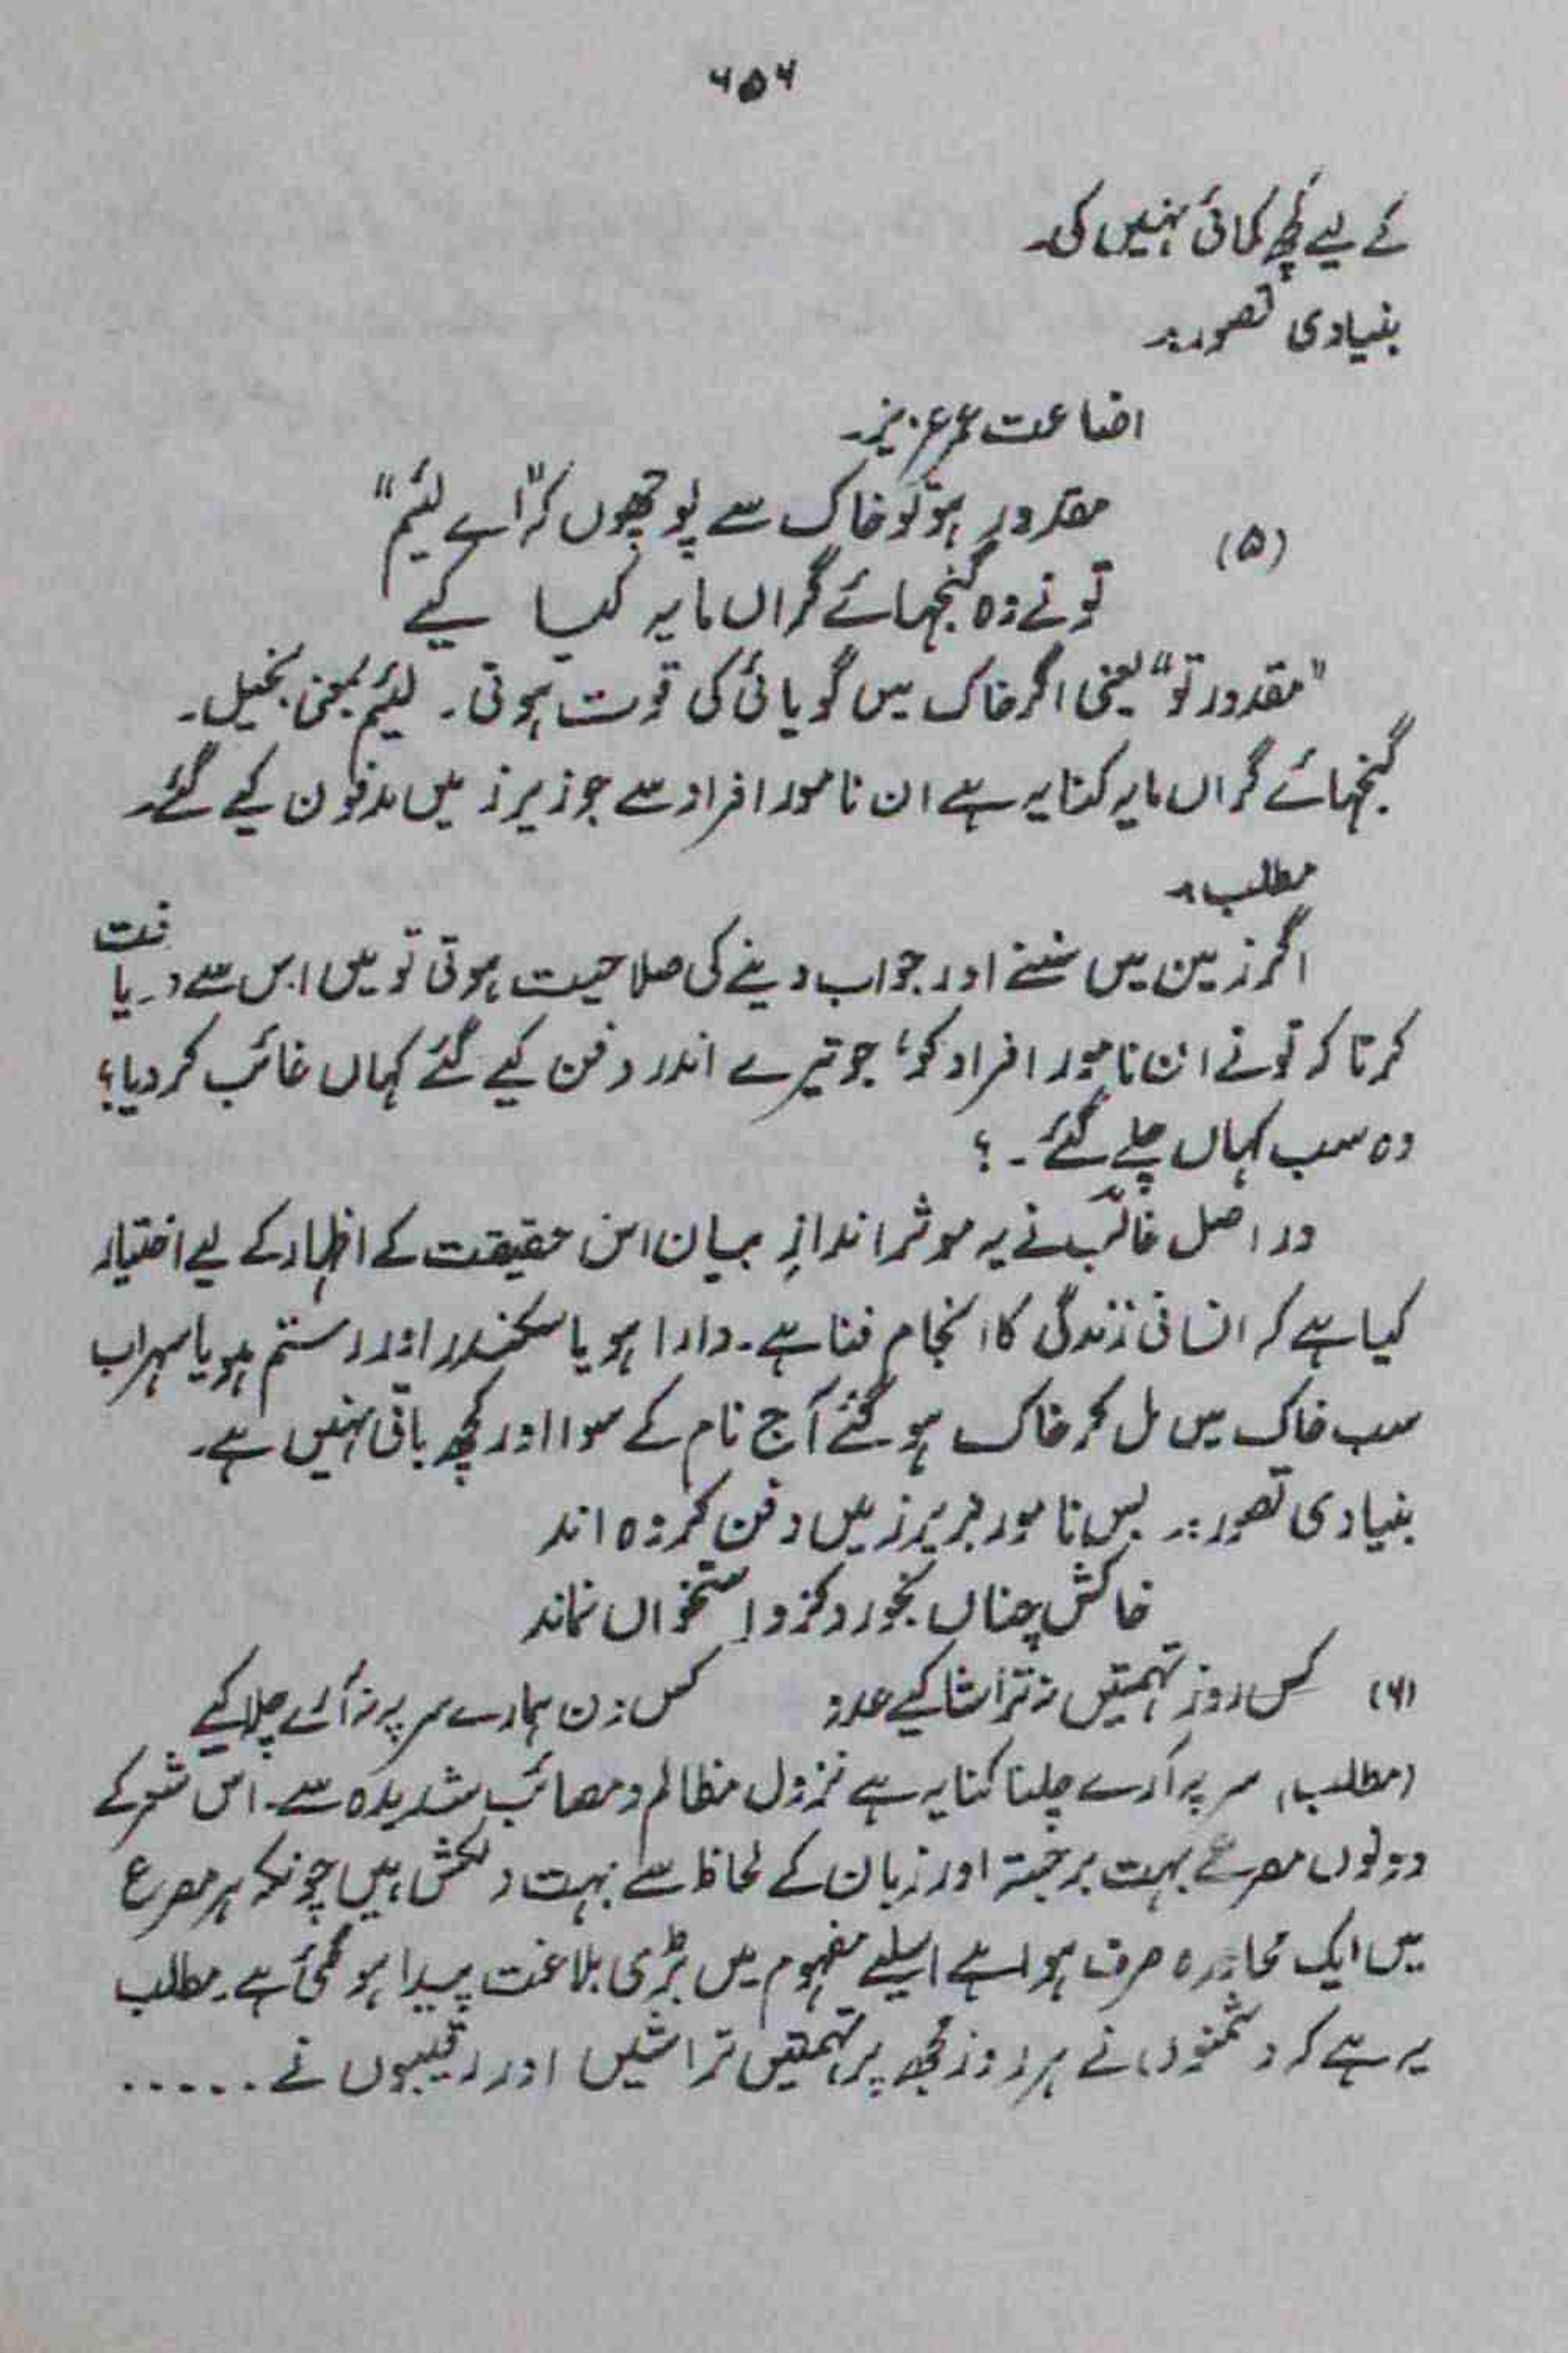 ۶۵۶
کے لیے کچھ کمائی نہیں کی۔
بنیادی تصور:۔
اضاعت عمر عزیز۔
(۵) مقدور ہو تو خاک سے پوچھوں کہ "اے لئیم"
تو نے وہ گنجہائے گراں مایہ کیا کیے
"مقدور تو" یعنی اگر خاک میں گویائی کی قوت ہوتی۔ لئیم بمعنی بخیل۔
گنجہائے گراں مایہ کنایہ ہے ان نامور افراد سے جو زیر زمیں مدفون کیے گئے۔
مطلب:۔
اگر زمین میں سننے اور جواب دینے کی صلاحیت ہوتی تو میں اس سے دریافت
کرتا کہ تو نے ان نامور افراد کو، جو تیرے اندر دفن کیے گئے کہاں غائب کر دیا؟
وہ سب کہاں چلے گئے۔؟
در اصل غالبؔ نے یہ موثر اندازِ بیان اس حقیقت کے اظہار کے لیے اختیار
کیا ہے کہ انسانی زندگی کا انجام فنا ہے۔ دارا ہو یا سکندر اور رستم ہو یا سہراب
سب خاک میں مل کر خاک ہو گئے آج نام کے سوا اور کچھ باقی نہیں ہے۔
بنیادی تصور:۔ بس نامور بزیر زمیں دفن کردہ اند
خاکش چناں بخورد کزو استخواں نماند
(۶) کس روز تہمتیں نہ تراشا کیے عدو کس دن ہمارے سر پہ نہ آرے چلا کیے
(مطلب) سر پہ آرے چلنا کنایہ ہے نزول مظالم و مصائب شدیدہ سے۔ اس شعر کے
دونوں مصرعے بہت برجستہ اور زبان کے لحاظ سے بہت دلکش ہیں چونکہ ہر مصرع
میں ایک محاورہ صرف ہوا ہے اسلیے مفہوم میں بڑی بلاغت پیدا ہو گئی ہے۔ مطلب
یہ ہے کہ دشمنوں نے ہر روز مجھ پر تہمتیں تراشیں اور رقیبوں نے ......